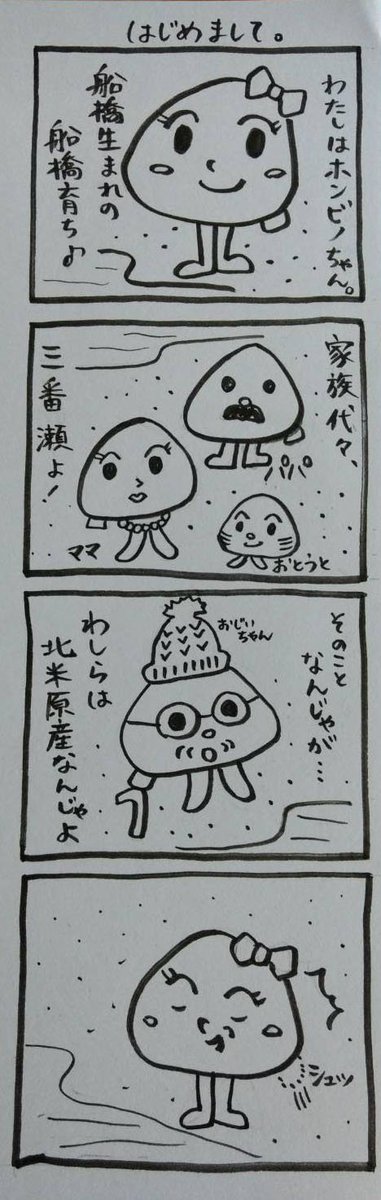 はじめまして。
わたしはホンビノちゃん。
船橋生まれの
船橋育ち♪
家族代々、
三番瀬よ!
パパ
ママ
おとうと
そのこと
なんじゃが…
おじい
ちゃん
わしらは
北米原産なんじゃよ
シュッ